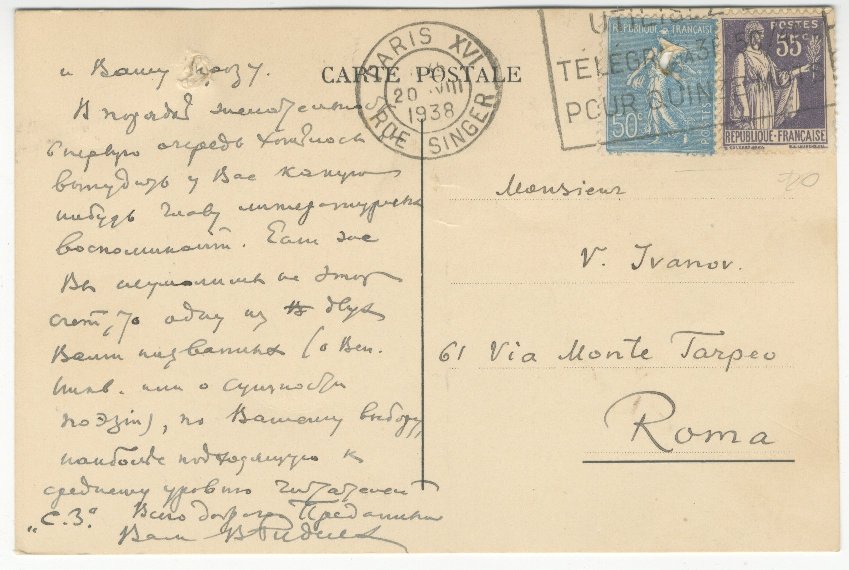 и Вашу прозу.
В порядке желательности
в первую очередь хотелось
выпудить у Вас какую
нибудь главу литературных
воспоминаний. Если же
Вы неумолимы на этот
счет, то одну из двух
Вами названных (о Вен.
или о сущности
поэзии), по Вашему выбору,
наиболее подходящую к
среднему уровню читателей
"С.З." Всего доброго Преданный
Вам
CARTE POSTALE
PARIS XVI
20 VIII
1938
RUE SINGER
TELEGR
POUR QUINZE MOTS
REPUBLIQUE FRANÇAISE
50c POSTES
POSTES
55c
REPUBLIQUE-FRANÇAISE
Monsieur
V. Ivanov.
61 Via Monte Tarpeo
Roma